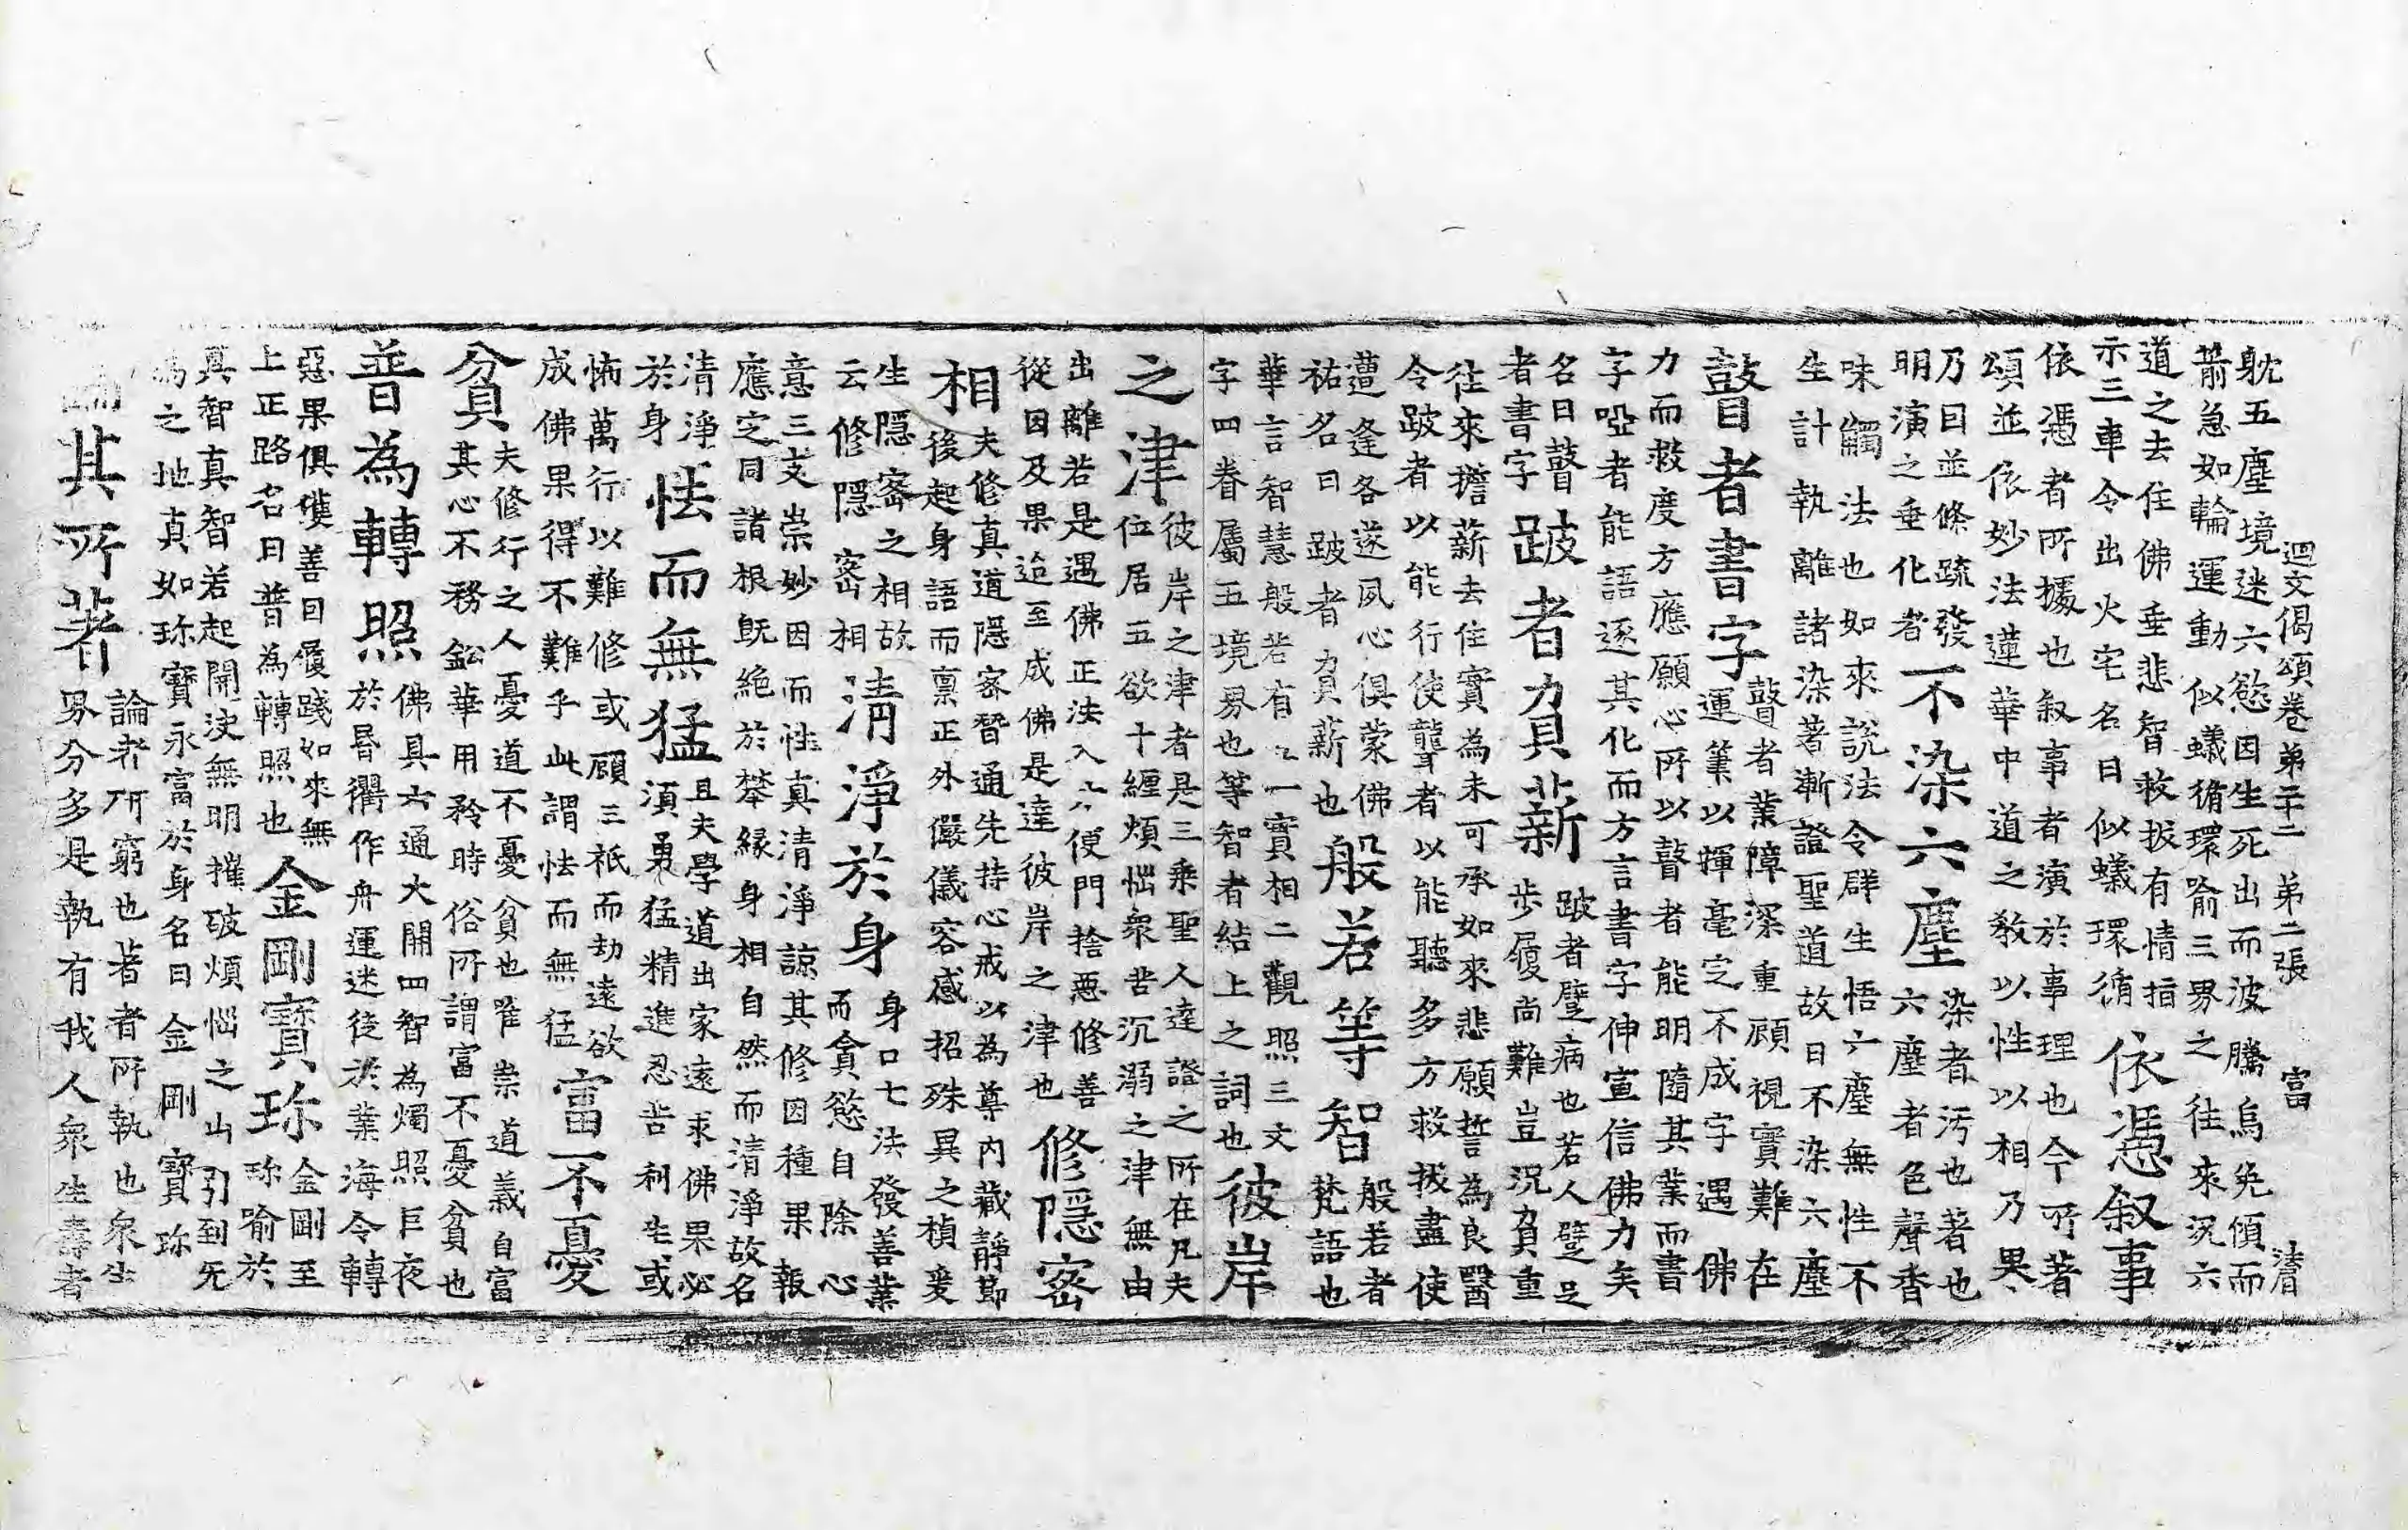 迴文偈頌卷弟二十二 弟二張 富 濬
躭五塵境迷六慾因生死出而波騰烏兔傾而
箭急如輪運動似蟻循環喻三界之往來沉六
道之去住佛垂悲智救拔有情指
示三車令出火宅名曰似蟻環循
依憑叙事
依憑者所據也叙事者演於事理也今所著
頌並依妙法蓮華中道之教以性以相乃果
乃因並條疏發
明演之垂化者
不染六塵
染者污也著也
六塵者色聲香
味觸法也如來說法令群生悟六塵無性不
生計執離諸染著漸證聖道故曰不染六塵
瞽者書字
瞽者業障深重顧視實難在
運筆以揮毫定不成字遇佛
力而救度方應願心所以瞽者能明隨其業而書
字啞者能語逐其化而方言書字伸宣信佛力矣
名曰瞽
者書字
跛者負薪
跛者躄病也若人躄足
步履尚難豈沉負重
往來擔薪去住實為未可承如來悲願誓為良醫
令跛者以能行使聾者以能聽多方救拔盡使
遭逢各遂夙心俱蒙佛
祐名曰跛者負薪也
般若等智
般若者
梵語也
華言智慧般若有一實相二觀照三文
字四眷屬五境界也等智者結上之詞也
彼岸
之津
彼岸之津者是三乘聖人達證之所在凡夫
位居五欲十纏煩惱衆苦沉溺之津無由
出離若是遇佛正法入方便門捨惡修善
從因及果迨至成佛是達彼岸之津也
修隱密
相
夫修真道隱密智通先持心戒以為尊內藏靜節
後起身語而禀正外儼儀容感招殊異之楨爰
生隱密之相故
云修隱密相
清淨於身
身口七法發善業
而貪慾自除心
意三支崇妙因而性真清淨諒其修因種果報
應定同諸根旣絶於攀緣身相自然而清淨故名
清淨
於身
怯而無猛
且夫學道出家遠求佛果必
須勇猛精進忍苦利生或
怖萬行以難修或顧三祇而劫遠欲
成佛果得不難乎此謂怯而無猛
富不憂
貧
夫修行之人憂道不憂貧也唯崇道義自富
其心不務鈆華用矜時俗所謂富不憂貧也
普為轉照
佛具六通大開四智為燭照巨夜
於昏衢作舟運迷徒於業海令轉
惡果俱獲善因履踐如來無
上正路名曰普為轉照也
金剛寶珎
金剛至
珎喻於
真智真智若起開決無明摧破煩惱之山引到无
為之地真如珎寶永富於身名曰金剛寶珎
論其所著
論者所窮也著者所執也衆生
界分多是執有我人衆生壽者